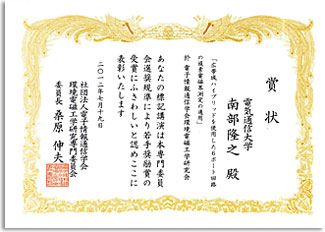 賞状
電気通信大学
南部隆之 殿
「広帯域ハイブリッドを使用した6ポート回路
の複素電磁率測定の適用」
於 電子情報通信学会環境電磁工学研究会
あなたの標記講演は本専門委員
会選奨規準により若手奨励賞の
受賞にふさわしいと認めここに
表彰いたします
二〇一二年七月十九日
社団法人電子情報通信学会
環境電磁工学研究専門委員会
委員長 桑原 伸夫